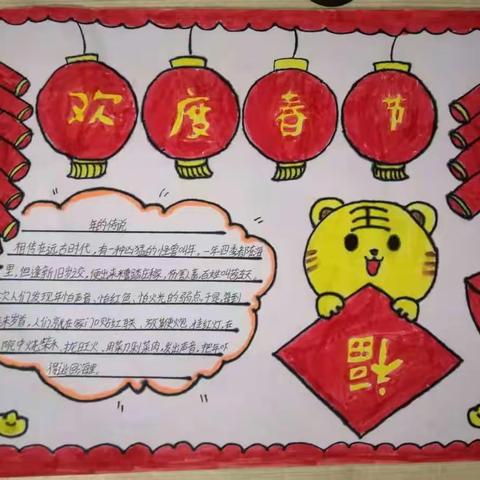 欢度春节
年的传说
相传在远古时代,有一种凶猛的怪兽叫年,一年四季都在
里,但逢新旧交,便出来糟蹋
次人们发现年怕声音、怕红色、怕火光的弱点,于是等到
来岁首,人们就在家门口贴红联、放鞭炮、挂红灯,在
院中烧柴火、拢旺火,用菜刀剁菜肉,发出声音,把年吓
得逃回海里。
王
福